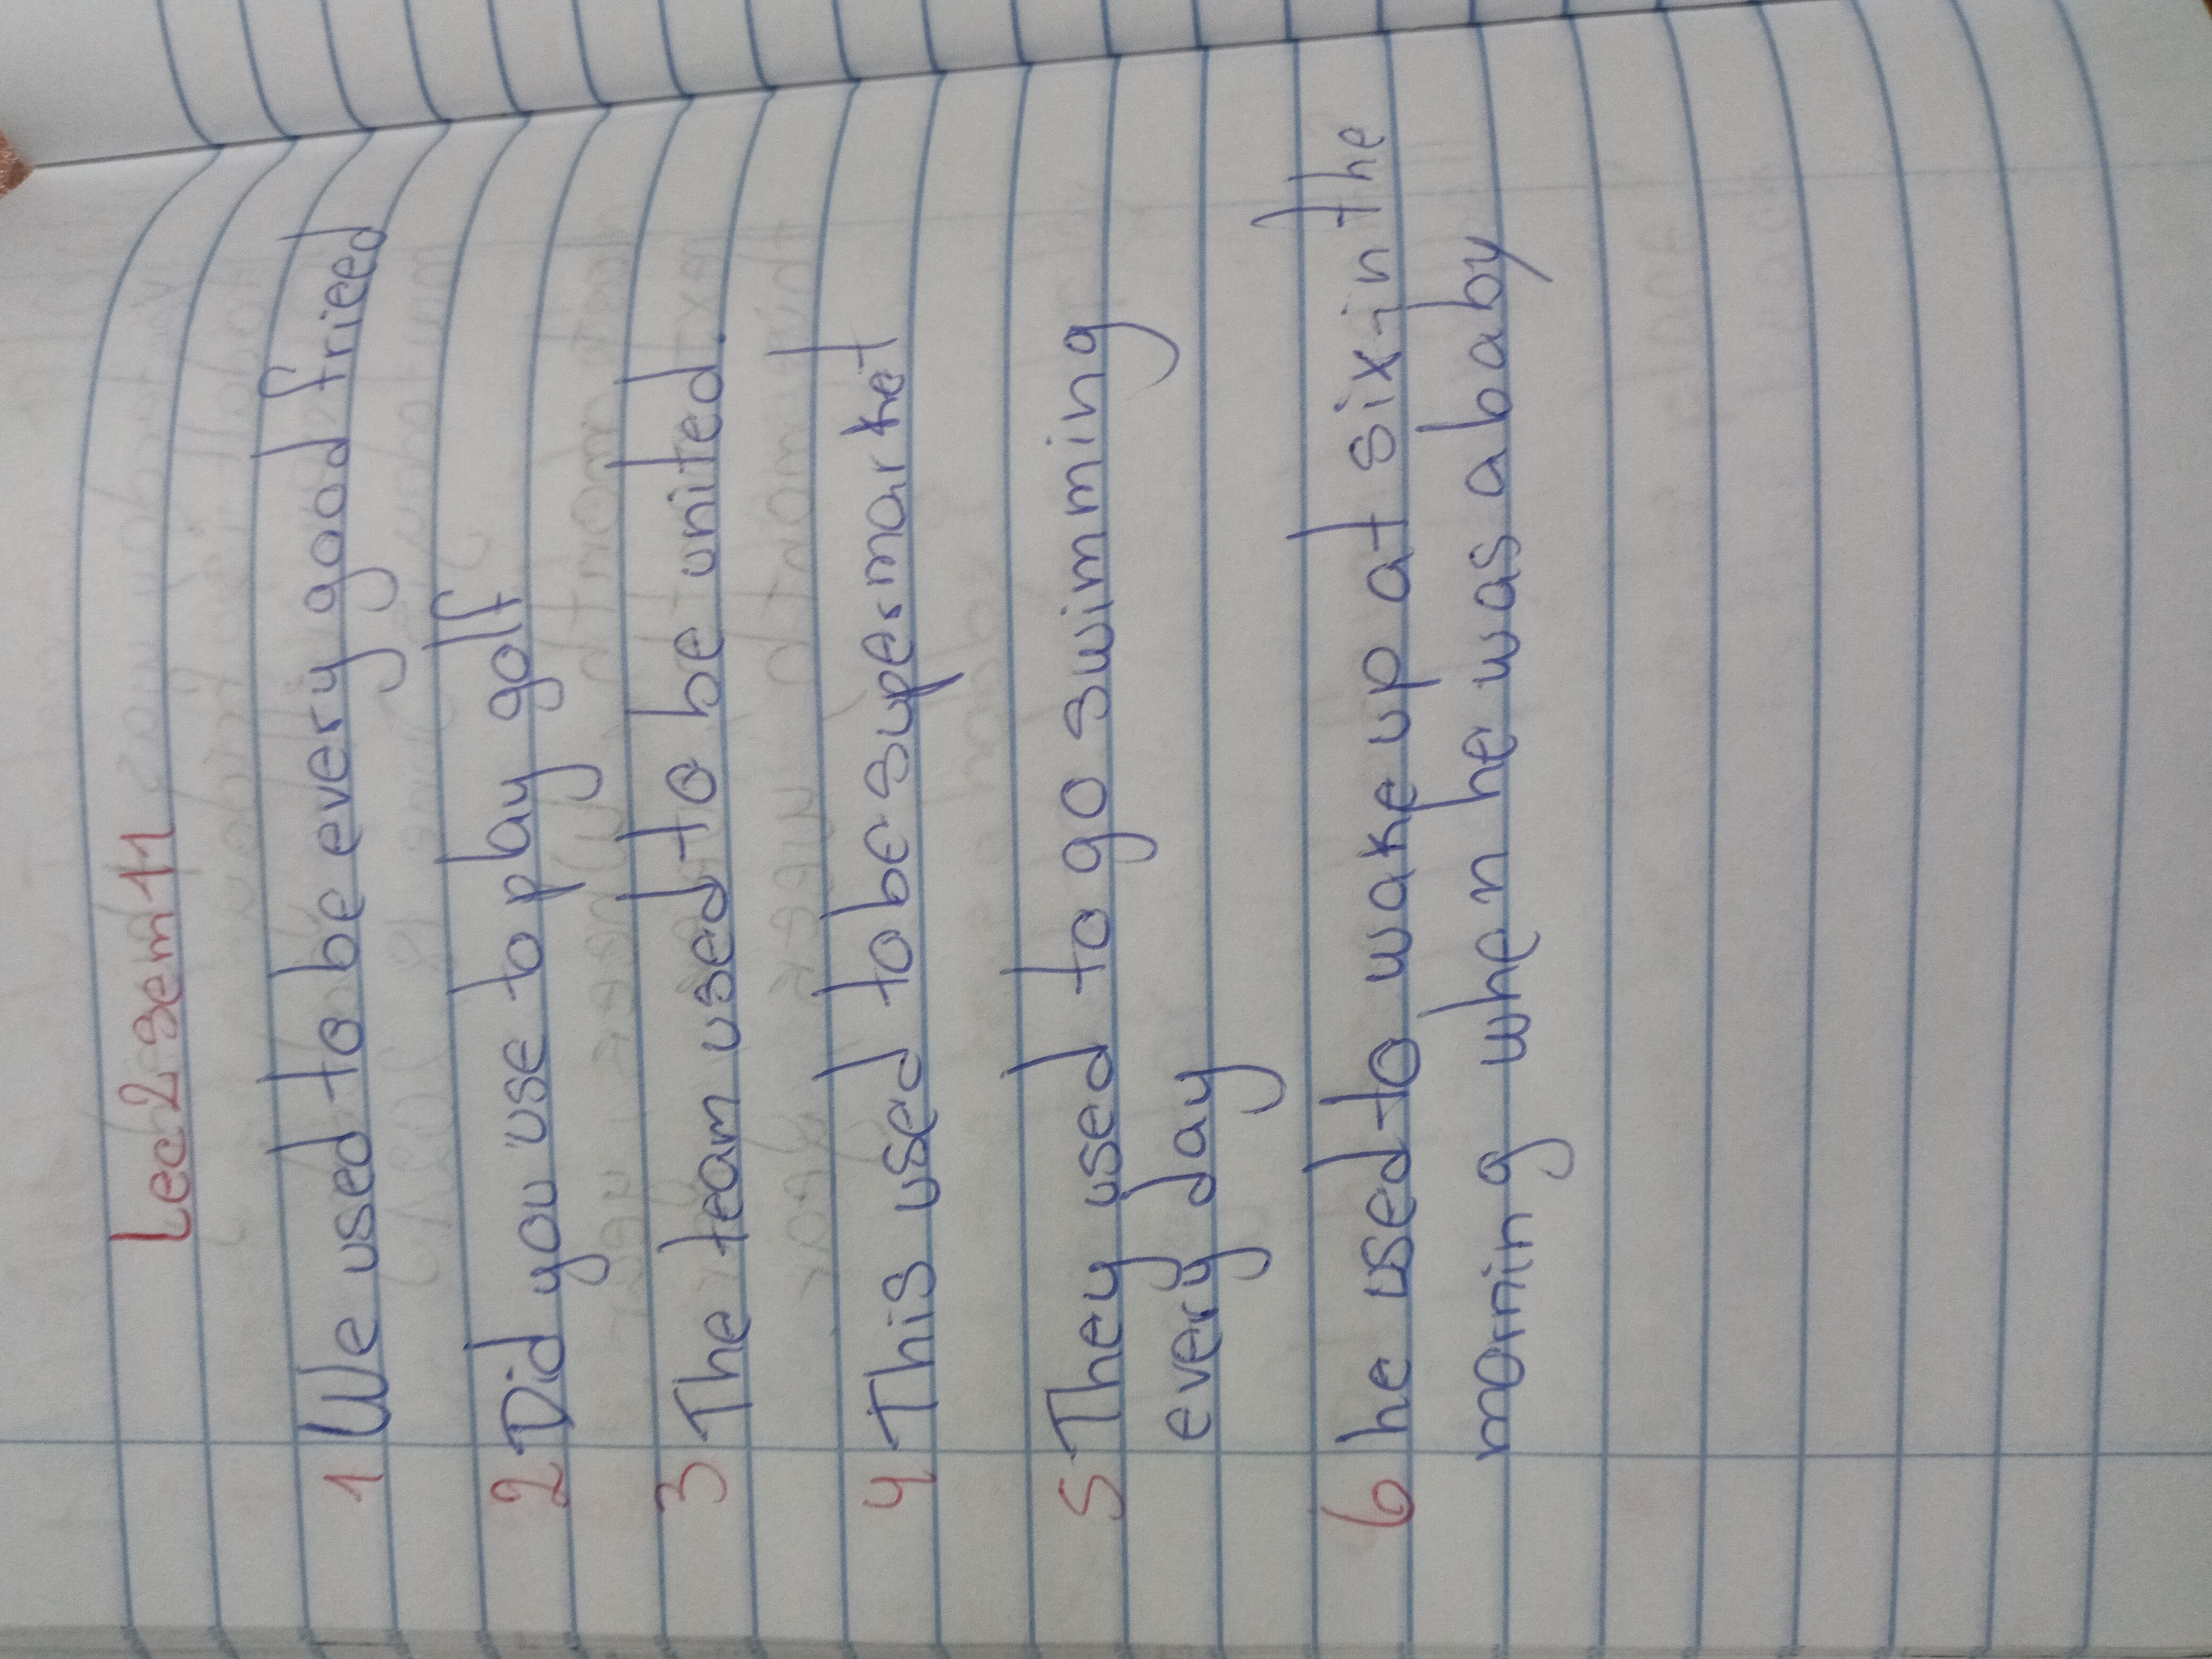 Lec 2 sem 11
1 We used to be every good fried
2 Did you use to play golf
3 The team used to be united.
4 This used to be supermarket
5 They used to go swimming
every day
6 he used to wake up at six in the
morning when he was a baby